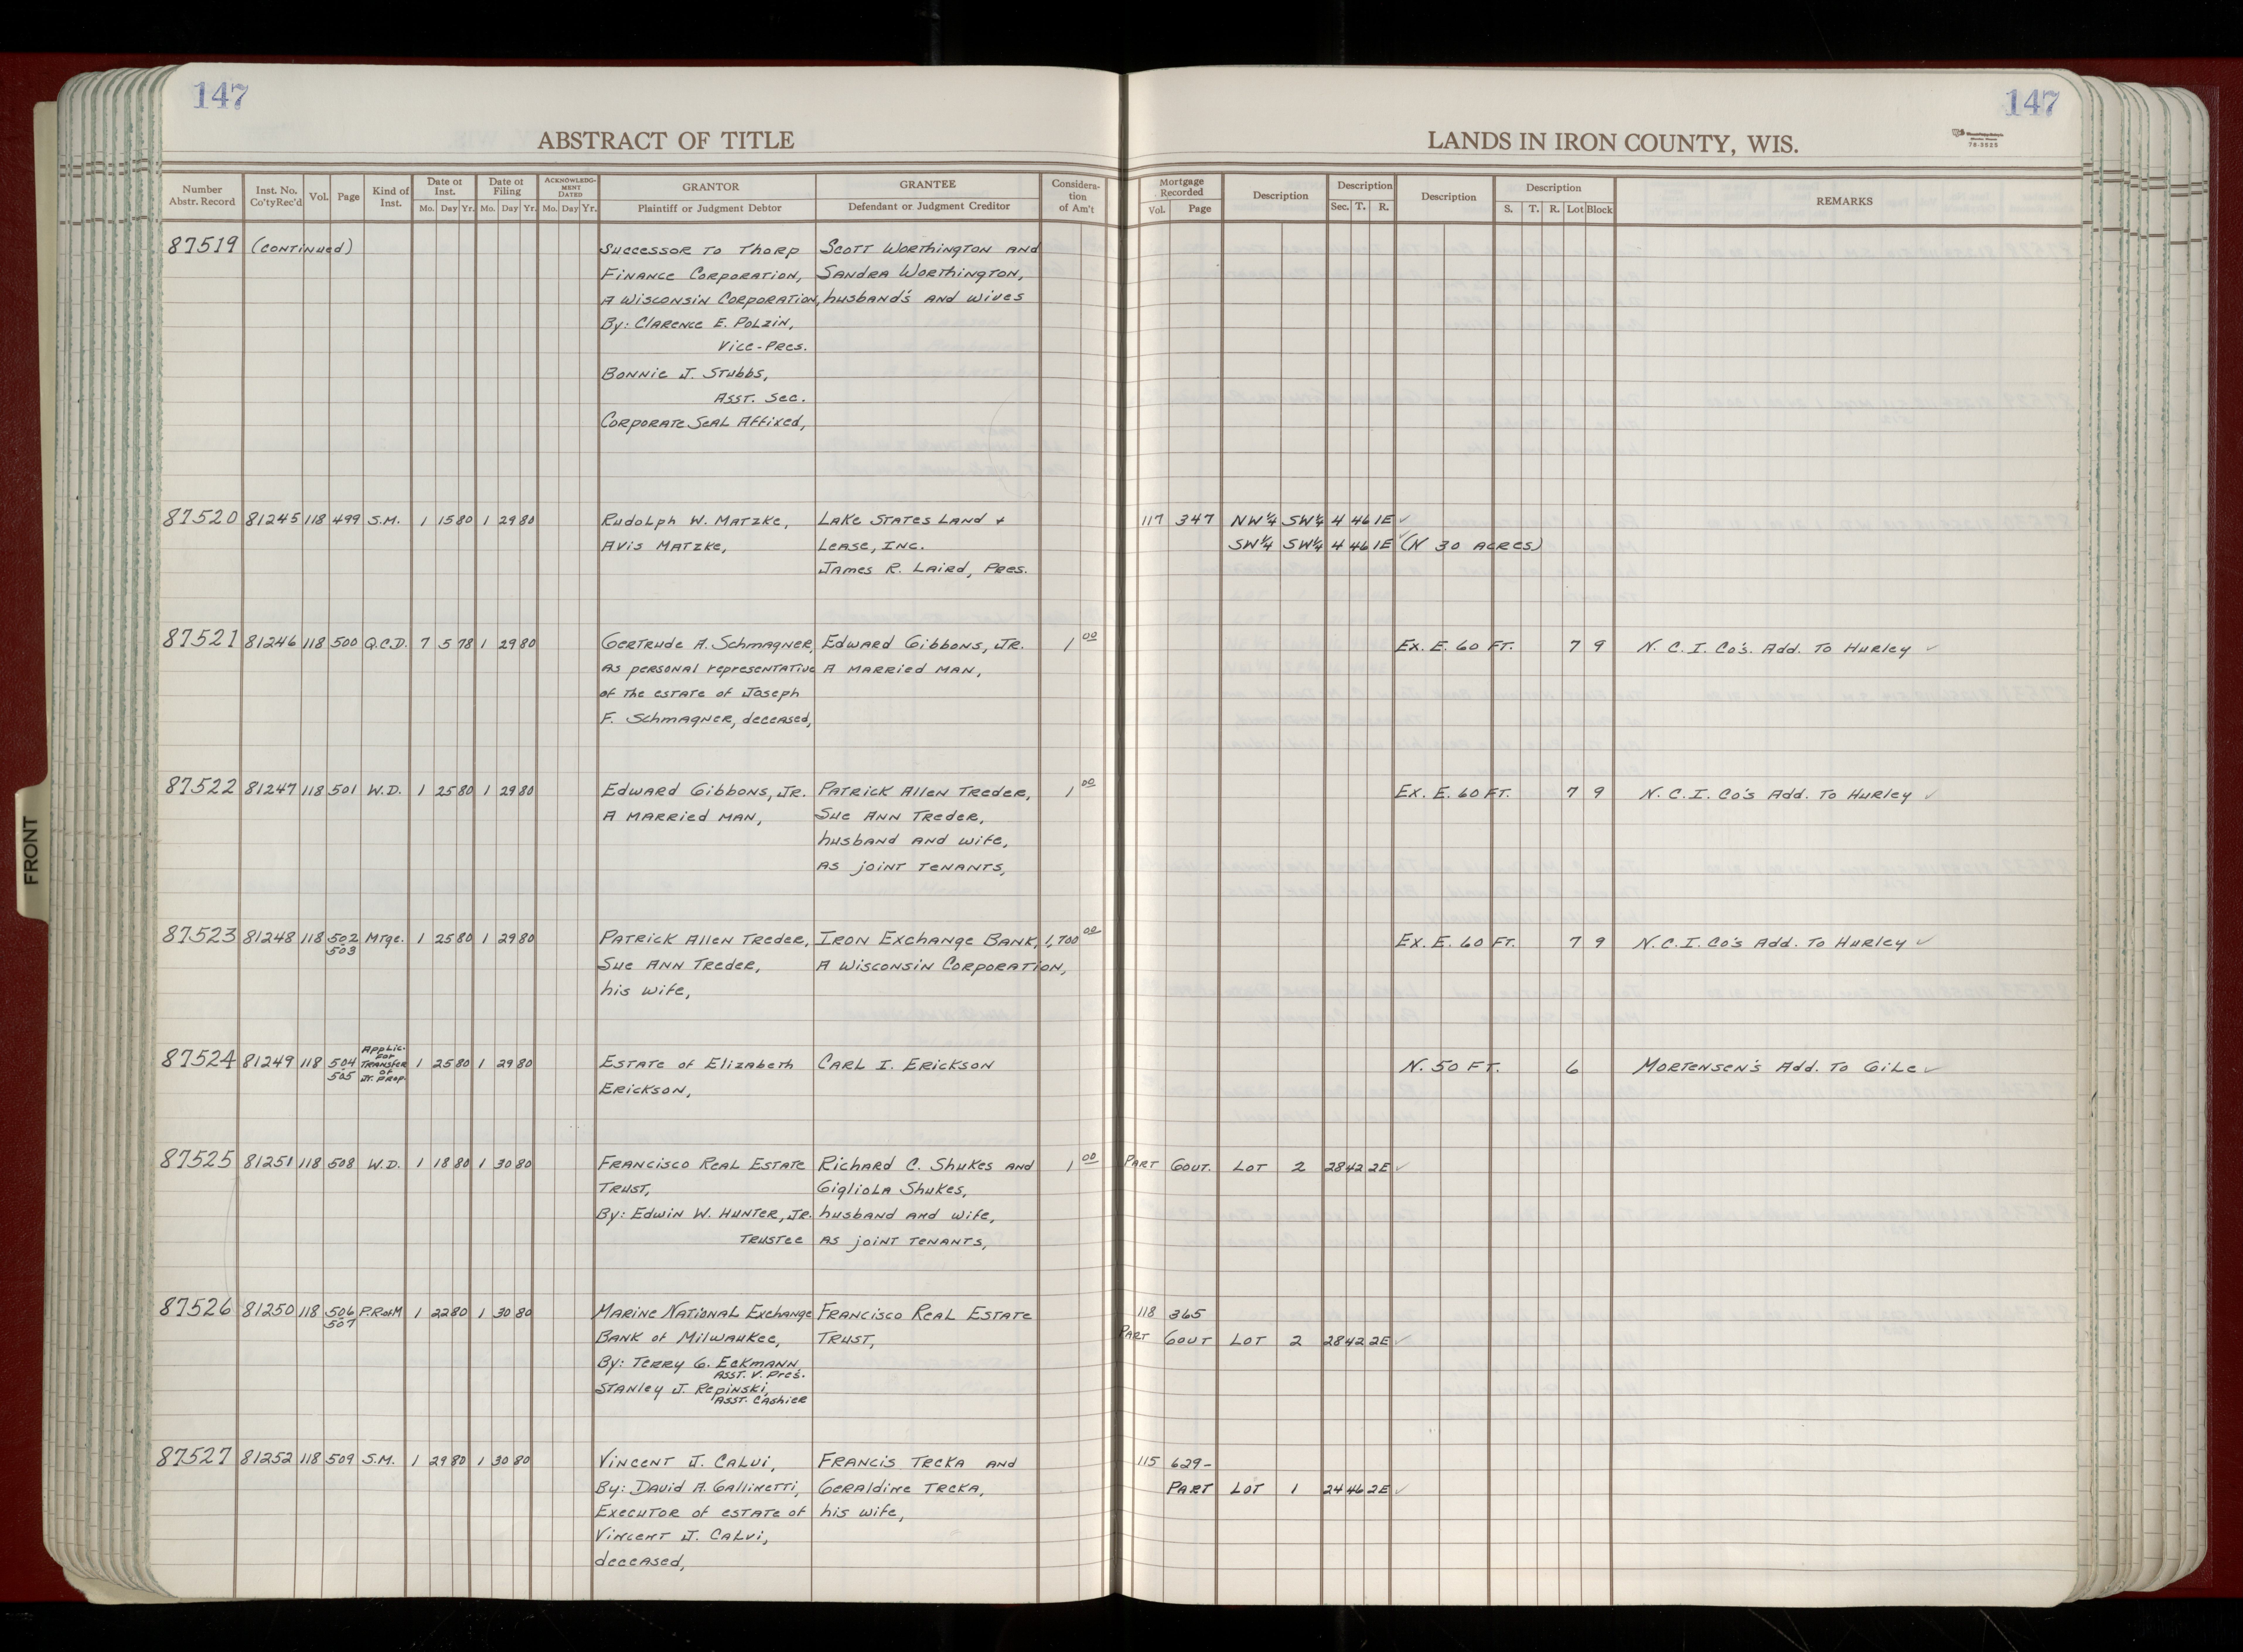 147
147
ABSTRACT OF TITLE
LANDS IN IRON COUNTY, WIS.
78-3525
Number Abstr. Record | Inst. No. Co'ty Rec'd | Vol. | Page | Kind of Inst. | Date of Inst. Mo. Day Yr. | Date of Filing Mo. Day Yr. | ACKNOWLEDGMENT DATED Mo. Day Yr. | GRANTOR Plaintiff or Judgment Debtor | GRANTEE Defendant or Judgment Creditor | Consideration of Am't | Mortgage Recorded Vol. Page | Description | Description Sec. T. R. | Description | Description S. T. R. Lot Block | REMARKS
87519 (Continued) Successor to Thorp Scott Worthington and
Finance Corporation, Sandra Worthington,
A Wisconsin Corporation, husband's and wives
By: Clarence E. Polzin,
Vice-Pres.
Bonnie J. Stubbs,
Asst. Sec.
Corporate Seal Affixed,
87520 81245 118 499 S.M. 1 15 80 1 29 80 Rudolph W. Matzke, Lake States Land + 117 347 NW¼ SW¼ 4 46 1E ✓
Avis Matzke, Lease, Inc. SW¼ SW¼ 4 46 1E ✓ (N 30 acres)
James R. Laird, Pres.
87521 81246 118 500 Q.C.D. 7 5 78 1 29 80 Gertrude A. Schmagner, Edward Gibbons, Jr. 1 00 Ex. E. 60 FT. 7 9 N. C. I. Co's. Add. To Hurley ✓
As personal representative A married man,
of the estate of Joseph
F. Schmagner, deceased,
87522 81247 118 501 W.D. 1 25 80 1 29 80 Edward Gibbons, Jr. Patrick Allen Treder, 1 00 Ex. E. 60 FT. 7 9 N. C. I. Co's Add. To Hurley ✓
A married man, Sue Ann Treder,
husband and wife,
As joint tenants,
87523 81248 118 502 503 Mtge. 1 25 80 1 29 80 Patrick Allen Treder, Iron Exchange Bank, 1,700 00 Ex. E. 60 FT. 7 9 N.C.I. Co's Add. To Hurley ✓
Sue Ann Treder, A Wisconsin Corporation,
his wife,
87524 81249 118 504 505 Applic. for Transfer of Jt. Prop. 1 25 80 1 29 80 Estate of Elizabeth Carl I. Erickson N. 50 FT. 6 Mortensen's Add. To Gile ✓
Erickson,
87525 81251 118 508 W.D. 1 18 80 1 30 80 Francisco Real Estate Richard C. Shukes and 1 00 Part Gout. Lot 2 28 42 2E ✓
Trust, Gigliola Shukes,
By: Edwin W. Hunter, Jr. husband and wife,
Trustee As joint tenants,
87526 81250 118 506 507 P.R.ofM 1 22 80 1 30 80 Marine National Exchange Francisco Real Estate 118 365
Bank of Milwaukee, Trust, Part Gout Lot 2 28 42 2E ✓
By: Terry G. Eckmann,
Asst. V. Pres.
Stanley J. Repinski,
Asst. Cashier
87527 81252 118 509 S.M. 1 29 80 1 30 80 Vincent J. Calvi, Francis Trcka and 115 629-
By: David A. Gallinetti, Geraldine Trcka, Part Lot 1 24 46 2E ✓
Executor of estate of his wife,
Vincent J. Calvi,
deceased,
FRONT